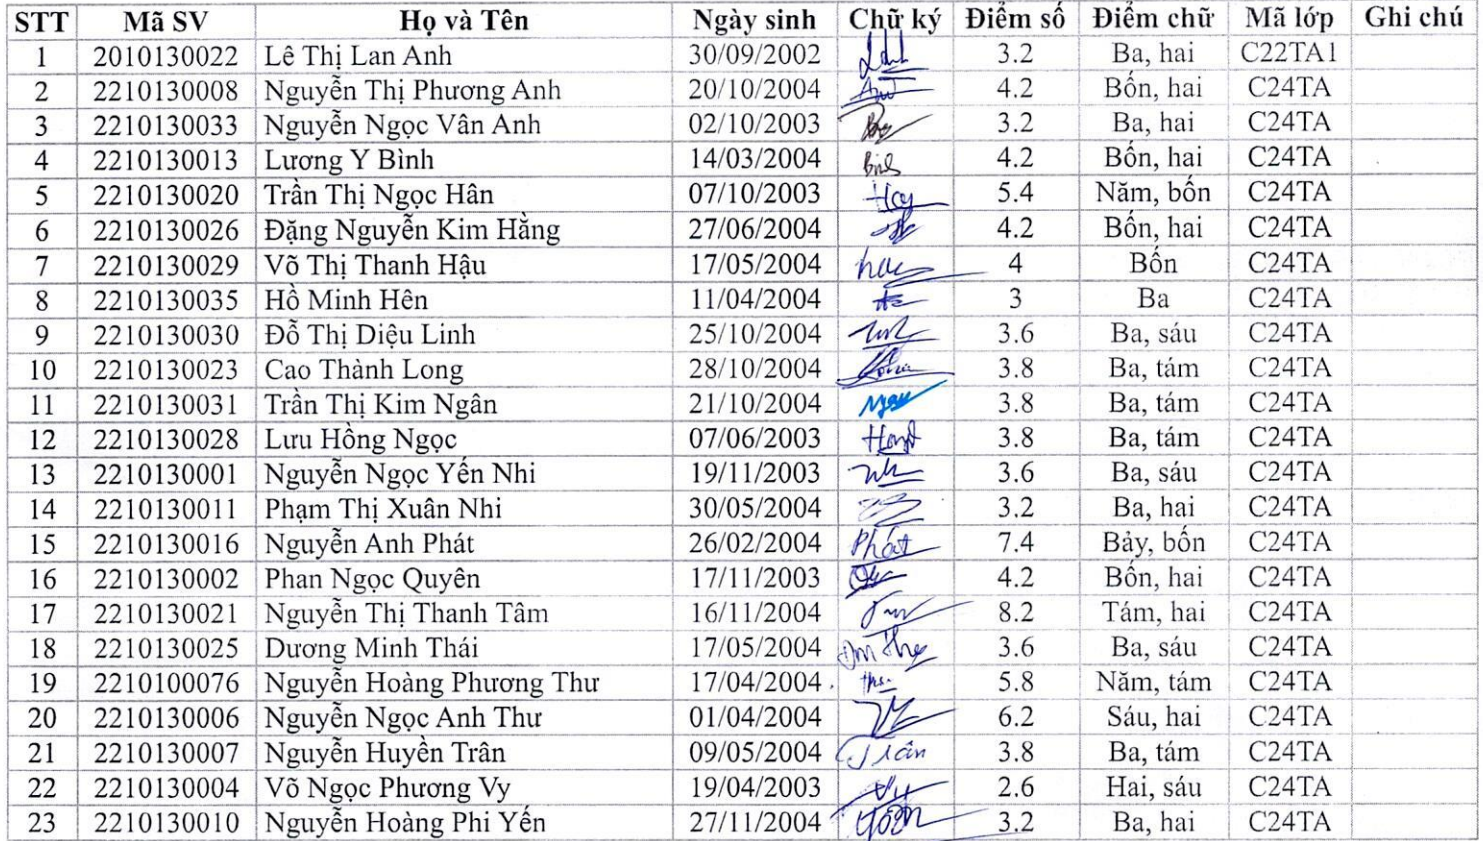 STT Mã SV Họ và Tên Ngày sinh Chữ ký Điểm số Điểm chữ Mã lớp Ghi chú
1 2010130022 Lê Thị Lan Anh 30/09/2002 3.2 Ba, hai C22TA1
2 2210130008 Nguyễn Thị Phương Anh 20/10/2004 4.2 Bốn, hai C24TA
3 2210130033 Nguyễn Ngọc Vân Anh 02/10/2003 3.2 Ba, hai C24TA
4 2210130013 Lương Y Bình 14/03/2004 4.2 Bốn, hai C24TA
5 2210130020 Trần Thị Ngọc Hân 07/10/2003 5.4 Năm, bốn C24TA
6 2210130026 Đặng Nguyễn Kim Hằng 27/06/2004 4.2 Bốn, hai C24TA
7 2210130029 Võ Thị Thanh Hậu 17/05/2004 4 Bốn C24TA
8 2210130035 Hồ Minh Hên 11/04/2004 3 Ba C24TA
9 2210130030 Đỗ Thị Diệu Linh 25/10/2004 3.6 Ba, sáu C24TA
10 2210130023 Cao Thành Long 28/10/2004 3.8 Ba, tám C24TA
11 2210130031 Trần Thị Kim Ngân 21/10/2004 3.8 Ba, tám C24TA
12 2210130028 Lưu Hồng Ngọc 07/06/2003 3.8 Ba, tám C24TA
13 2210130001 Nguyễn Ngọc Yến Nhi 19/11/2003 3.6 Ba, sáu C24TA
14 2210130011 Phạm Thị Xuân Nhi 30/05/2004 3.2 Ba, hai C24TA
15 2210130016 Nguyễn Anh Phát 26/02/2004 Phát 7.4 Bảy, bốn C24TA
16 2210130002 Phan Ngọc Quyên 17/11/2003 4.2 Bốn, hai C24TA
17 2210130021 Nguyễn Thị Thanh Tâm 16/11/2004 8.2 Tám, hai C24TA
18 2210130025 Dương Minh Thái 17/05/2004 3.6 Ba, sáu C24TA
19 2210100076 Nguyễn Hoàng Phương Thư 17/04/2004 5.8 Năm, tám C24TA
20 2210130006 Nguyễn Ngọc Anh Thư 01/04/2004 6.2 Sáu, hai C24TA
21 2210130007 Nguyễn Huyền Trân 09/05/2004 Trân 3.8 Ba, tám C24TA
22 2210130004 Võ Ngọc Phương Vy 19/04/2003 Vy 2.6 Hai, sáu C24TA
23 2210130010 Nguyễn Hoàng Phi Yến 27/11/2004 3.2 Ba, hai C24TA